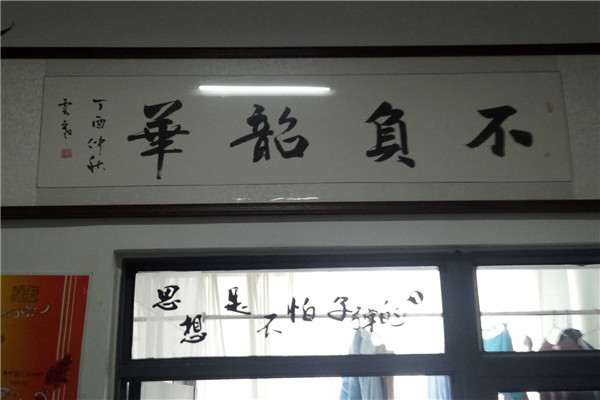 不負韶華
丁酉仲秋
思想是不怕子弹的